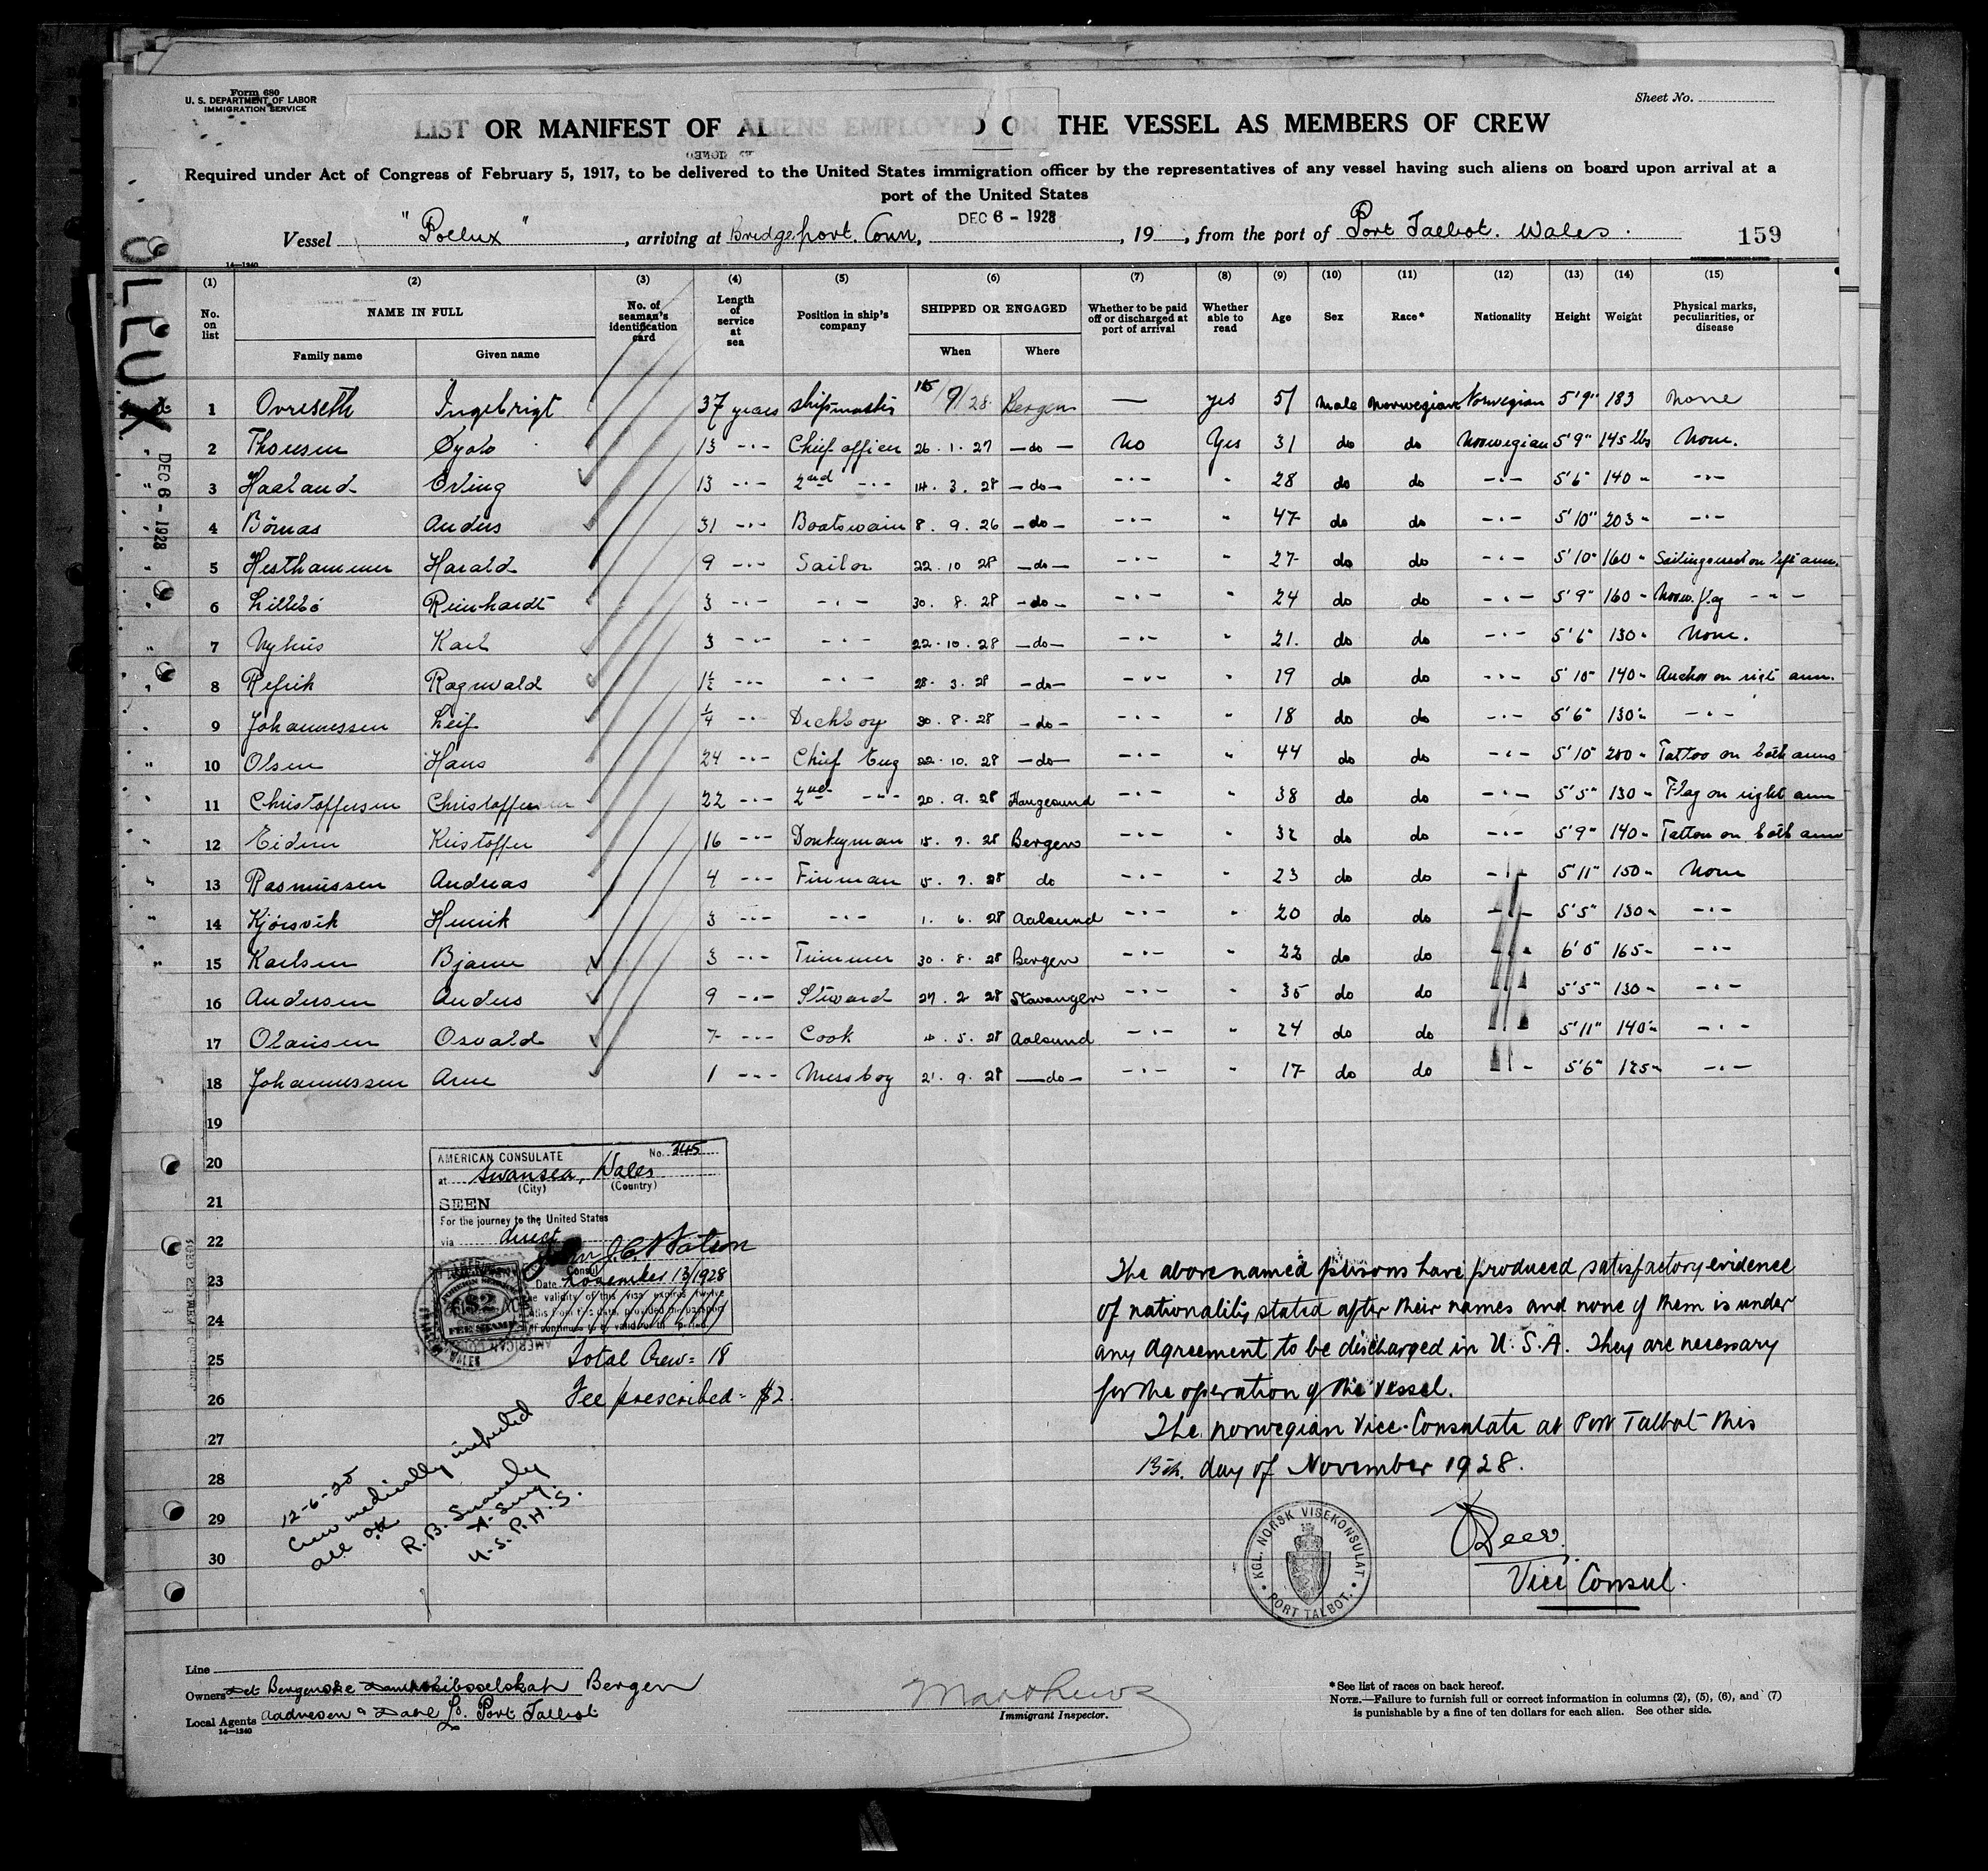 Form 680
U. S. DEPARTMENT OF LABOR
IMMIGRATION SERVICE
Sheet No.
LIST OR MANIFEST OF ALIENS EMPLOYED ON THE VESSEL AS MEMBERS OF CREW
Required under Act of Congress of February 5, 1917, to be delivered to the United States immigration officer by the representatives of any vessel having such aliens on board upon arrival at a
port of the United States
Vessel "Pollux", arriving at Bridgeport. Conn, DEC 6 - 1928, 19 , from the port of Port Talbot. Wales. 159
14—1240
(1) (2) (3) (4) (5) (6) (7) (8) (9) (10) (11) (12) (13) (14) (15)
No. on list NAME IN FULL No. of seaman's identification card Length of service at sea Position in ship's company SHIPPED OR ENGAGED Whether to be paid off or discharged at port of arrival Whether able to read Age Sex Race* Nationality Height Weight Physical marks, peculiarities, or disease
Family name Given name When Where
1 Ovreseth Ingebrigt 37 years shipmaster 15/9/28 Bergen — yes 51 male norwegian Norwegian 5'9" 183 none
2 Thoresen 13 -·- Chief officer 26.1.27 —do— No Yes 31 do do Norwegian 5'9" 145 lbs None.
3 Haaland Erling 13 -·- 2nd -·- 14.3.28 —do— -·- " 28 do do -·- 5'6" 140 " -·-
4 Bömas Anders 31 -·- Boatswain 8.9.26 —do— -·- " 47 do do -·- 5'10" 203 " -·-
5 Hesthammer Harald 9 -·- Sailor 22.10 28 —do— -·- " 27 do do -·- 5'10" 160 " on left arm.
6 Lillebö Reinhardt 3 -·- -·- 30.8.28 —do— -·- " 24 do do -·- 5'9" 160 " Norw. flag -·-
7 Nyhus Karl 3 -·- -·- 22.10.28 —do— -·- " 21. do do -·- 5'6" 130 " None.
8 Refsik Ragnvald 1½ -·- -·- 28.3.28 —do— -·- " 19 do do -·- 5'10" 140 " Anchor on right arm.
9 Johannessen Leif ¼ -·- Deckboy 30.8.28 —do— -·- " 18 do do -·- 5'6" 130 " -·-
10 Olsen Hans 24 -·- Chief Eng 22.10.28 —do— -·- " 44 do do -·- 5'10" 200 " Tattoo on both arms
11 Christoffersen Christoffer 22 -·- 2nd -·- 20.9.28 Haugesund -·- " 38 do do -·- 5'5" 130 " Flag on right arm
12 Eidem Kristoffer 16 -·- Donkeyman 15.7.28 Bergen -·- " 32 do do -·- 5'9" 140 " Tattoo on both arms
13 Rasmussen Andreas 4 -·- Fireman 15.7.28 do -·- " 23 do do -·- 5'11" 150 " None
14 Kjörsvik Henrik 3 -·- -·- 1.6.28 Aalesund -·- " 20 do do -·- 5'5" 130 " -·-
15 Karlsen Bjarne 3 -·- Trimmer 30.8.28 Bergen -·- " 22 do do -·- 6'0" 165 " -·-
16 Andersen Anders 9 -·- Steward 27.2 28 Stavanger -·- " 35 do do -·- 5'5" 130 " -·-
17 Olausen Osvald 7 -·- Cook 4.5.28 Aalesund -·- " 24 do do -·- 5'11" 140 " -·-
18 Johannessen Arne 1 -·- Messboy 21.9.28 —do— -·- " 17 do do -·- 5'6" 125 " -·-
19
20
21
22
23
24
25
26
27
28
29
30
OLLUX
DEC 6 - 1928
AMERICAN CONSULATE No. 345
at Swansea, Wales
(City) (Country)
SEEN
For the journey to the United States
via direct
John J. C. Watson
Consul
Date November 13/1928
The validity of this visa expires twelve
months from this date, provided the passport
continues to be valid for that period
$2
FEE STAMP
Total Crew = 18
Fee prescribed = $2.
The above named persons have produced satisfactory evidence
of nationality stated after their names and none of them is under
any Agreement to be discharged in U.S.A. They are necessary
for the operation of the vessel.
The Norwegian Vice-Consulate at Port Talbot this
13th. day of November 1928.
Vice Consul.
KGL. NORSK VISEKONSULAT
PORT TALBOT.
12-6-28
Crew medically inspected
all ok
R. B. Snavely
A. Surg.
U.S.P.H.S.
Line
Owners Det Bergenske Dampskibsselskap Bergen
Local Agents Aadnesen & Dahl Ld. Port Talbot
14—1240
Matthews
Immigrant Inspector.
*See list of races on back hereof.
NOTE.—Failure to furnish full or correct information in columns (2), (5), (6), and (7)
is punishable by a fine of ten dollars for each alien. See other side.